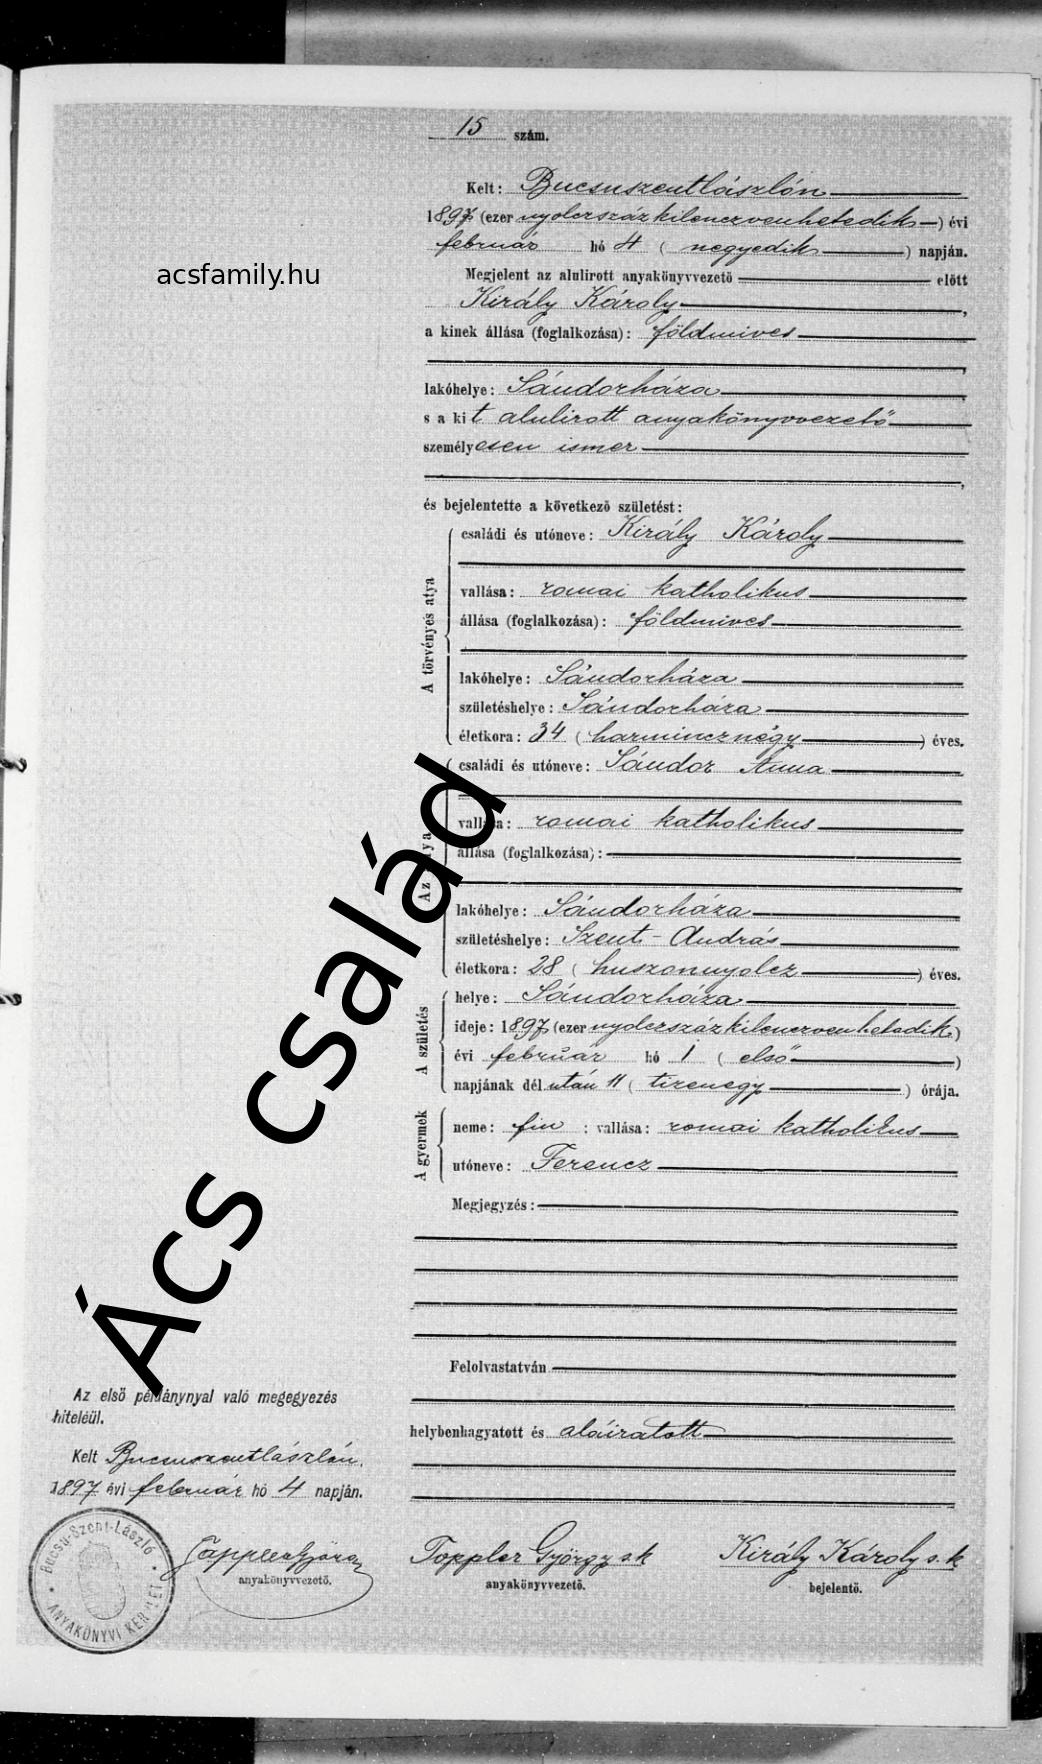 15 szám.
Kelt: Bucsuszentlászlón
1897 (ezer nyolczszázkilenczvenhetedik) évi
február hó 4 (negyedik) napján.
acsfamily.hu
Megjelent az alulirott anyakönyvvezető előtt
Király Károly,
a kinek állása (foglalkozása): földmives
lakóhelye: Sándorháza
s a kit alulirott anyakönyvvezető
személyesen ismer
és bejelentette a következő születést:
A törvényes atya
családi és utóneve: Király Károly
vallása: romai katholikus
állása (foglalkozása): földmives
lakóhelye: Sándorháza
születéshelye: Sándorháza
életkora: 34 (harmincznégy) éves.
Az anya
családi és utóneve: Sándor Anna
vallása: romai katholikus
állása (foglalkozása):
lakóhelye: Sándorháza
születéshelye: Szent-András
életkora: 28 (huszonnyolcz) éves.
A születés
helye: Sándorháza
ideje: 1897 (ezer nyolczszázkilenczvenhetedik)
évi február hó 1 (első)
napjának dél után 11 (tizenegy) órája.
A gyermek
neme: fiu : vallása: romai katholikus
utóneve: Ferencz
Megjegyzés:
Ács család
Felolvastatván
helybenhagyatott és aláiratott
Az első példánynyal való megegyezés
hiteléül.
Kelt Bucsuszentlászlón,
1897 évi február hó 4 napján.
Bucsu-Szent-László
ANYAKÖNYVI KERÜLET
Toppler György
anyakönyvvezető.
Toppler György s. k
anyakönyvvezető.
Király Károly s. k
bejelentő.